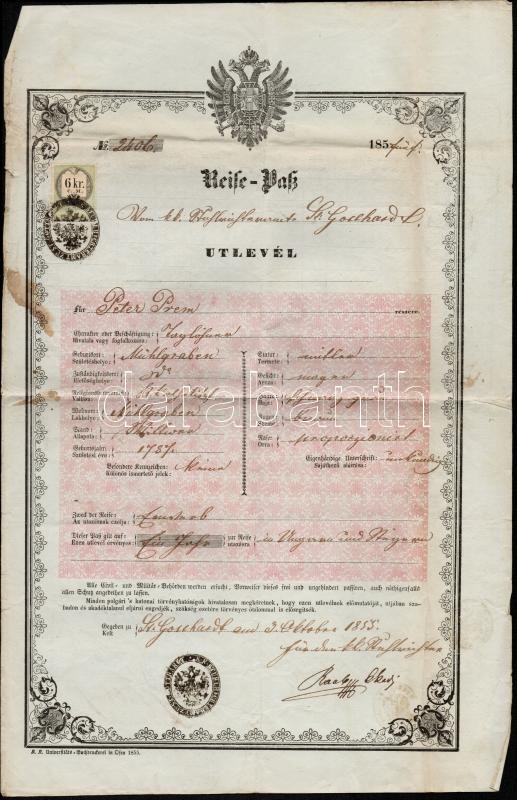 № 2406. 185 fünf.
6 kr.
C. M.
Reise-Paß
Vom kk. Stuhlrichteramte St Gotthardt.
UTLEVÉL
Für Peter Prem részére.
Charakter oder Beschäftigung:
Hivatala vagy foglalkozása: Taglöhner
Geburtsort:
Születéshelye: Mühlgraben
Zuständigkeitsort:
Illetőséghelye: do
Vallása: Katholisch
Wohnort:
Lakhelye: Mühlgraben
Stand:
Állapota:
Geburtsjahr:
Születési éve:
Besondere Kennzeichen:
Különös ismertető jelek: Keine
Statur:
Termete: mittler
Gesicht:
Arcza: mager
Haare:
Haja:
Augen:
Szeme: braun
Nase:
Orra: proporzionirt
Eigenhändige Unterschrift:
Sajátkezű aláírása: unkundig
Zweck der Reise:
Az utazásnak czélja:
Dieser Paß gilt auf:
Ezen utlevél érvényes: Ein Jahr zur Reise
utazásra in Ungarn und Steyern
Alle Civil- und Militär-Behörden werden ersucht, Vorweiser dieses frei und ungehindert passiren, auch nöthigenfalls
allen Schutz angedeihen zu lassen.
Minden polgári 's katonai törvényhatóságok hivatalosan megkéretnek, hogy ezen utlevélnek előmutatóját, utjában sza-
badon és akadálytalanul eljárni engedjék, szükség esetére törvényes oltalommal is elősegitsék.
Gegeben zu
Kelt St. Gotthardt am 3. Oktober 1855.
für den kk. Stuhlrichter
darabanth
K. K. Universitäts-Buchdruckerei in Ofen 1855.